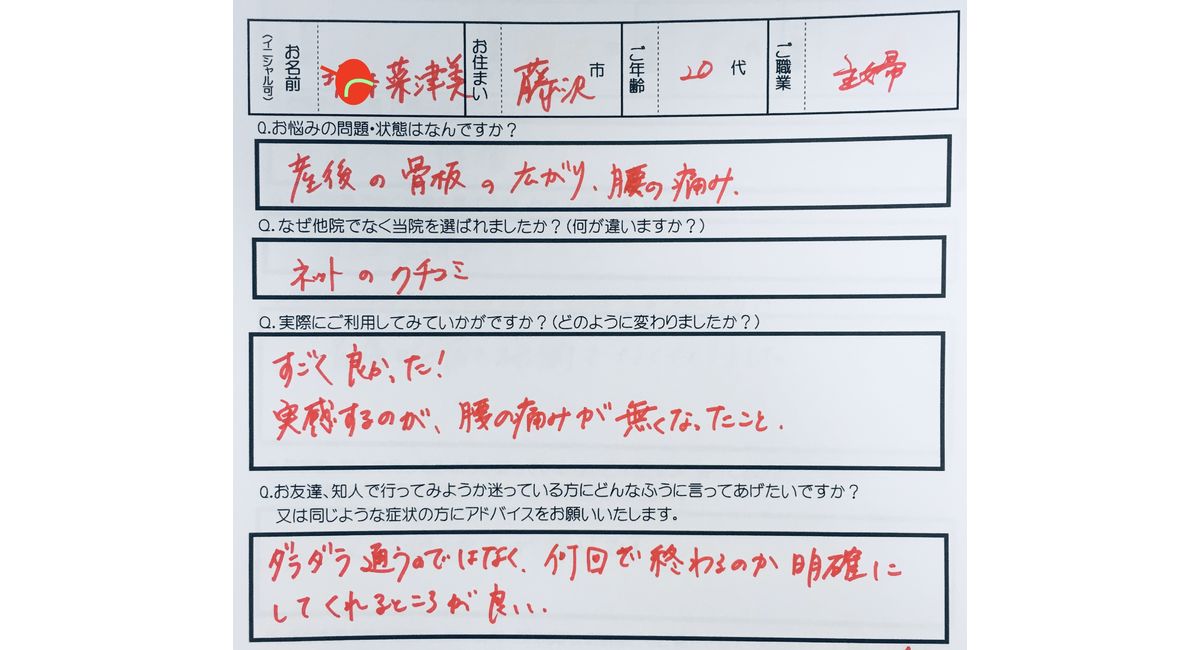 お名前(イニシャル可) 菜津美 お住まい 藤沢市 ご年齢 20代 ご職業 主婦
Q.お悩みの問題・状態はなんですか?
産後の骨板の広がり、腰の痛み.
Q.なぜ他院でなく当院を選ばれましたか?(何が違いますか?)
ネットのクチコミ
Q.実際にご利用してみていかがですか?(どのように変わりましたか?)
すごく良かった!
実感するのが、腰の痛みが無くなったこと.
Q.お友達、知人で行ってみようか迷っている方にどんなふうに言ってあげたいですか?
又は同じような症状の方にアドバイスをお願いいたします。
ダラダラ通うのではなく、何回で終わるのか明確に
してくれるところが良い.